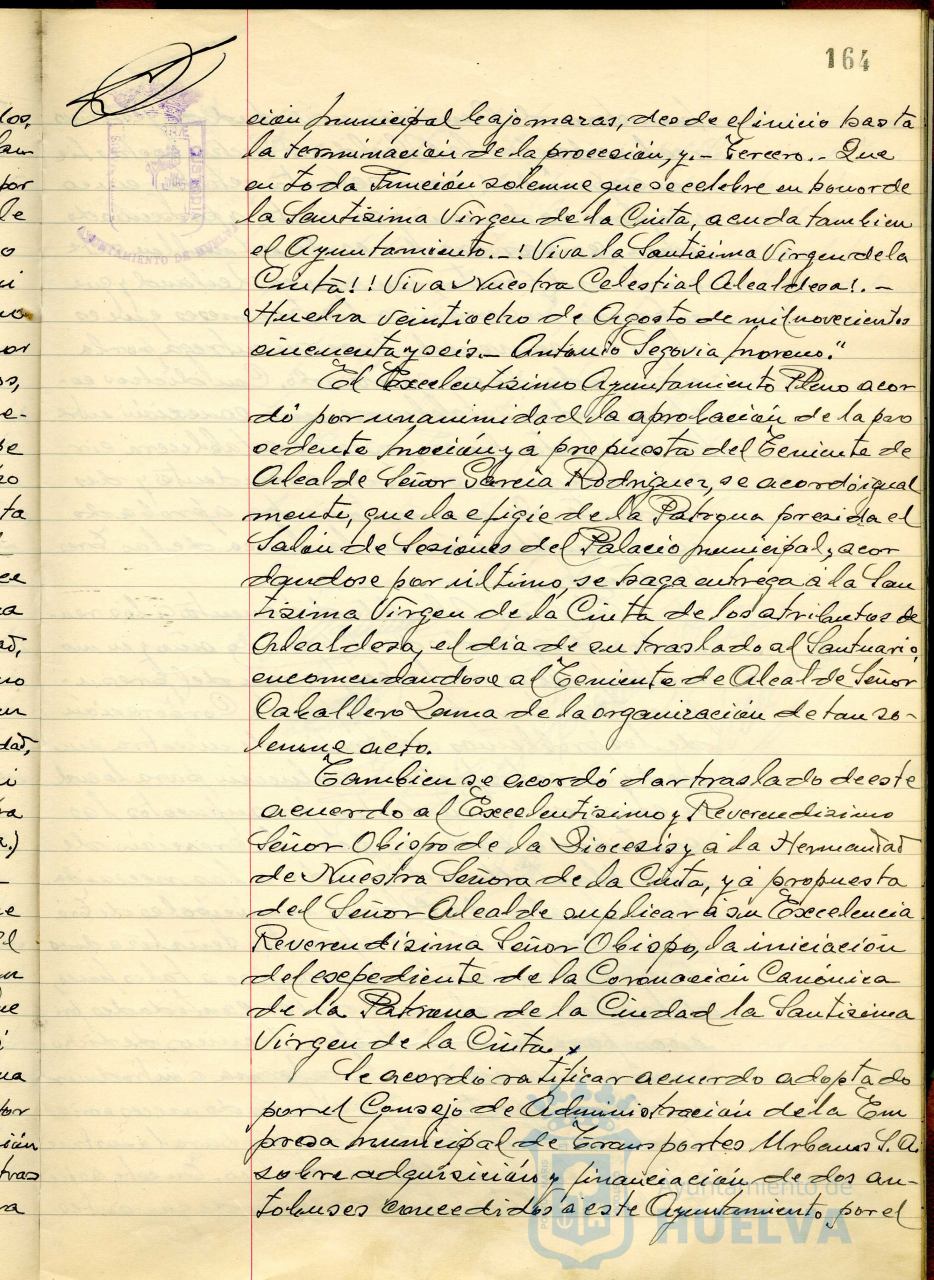 164
ción municipal bajo mazas, desde el inicio hasta
la terminación de la procesión, y.- Tercero.- Que
en toda Función solemne que se celebre en honor de
la Santísima Virgen de la Cinta, acuda tambien
el Ayuntamiento.- ! Viva la Santísima Virgen de la
Cinta! ! Viva Nuestra Celestial Alcaldesa!.-
Huelva veintiocho de Agosto de mil novecientos
cincuenta y seis.- Antonio Segovia Moreno."
El Excelentísimo Ayuntamiento Pleno acor
dó por unanimidad la aprobación de la pre
cedente moción y á propuesta del Teniente de
Alcalde Señor García Rodríguez, se acordó igual
mente, que la efigie de la Patrona presida el
Salón de Sesiones del Palacio municipal, acor
dandose por último, se haga entrega á la San
tísima Virgen de la Cinta de los atributos de
Alcaldesa, el día de su traslado al Santuario,
encomendandose al Teniente de Alcalde Señor
Caballero Zama de la organización de tan so-
lemne acto.
Tambien se acordó dar traslado de este
acuerdo al Excelentísimo y Reverendísimo
Señor Obispo de la Diocesis y á la Hermandad
de Nuestra Señora de la Cinta, y á propuesta
del Señor Alcalde suplicar á su Excelencia
Reverendísima Señor Obispo, la iniciación
del expediente de la Coronación Canónica
de la Patrona de la Ciudad la Santísima
Virgen de la Cinta.
Se acordó ratificar acuerdo adoptado
por el Consejo de Administración de la Em
presa municipal de Transportes Urbanos S.A.
sobre adquisición y financiación de dos au-
tobuses concedidos á este Ayuntamiento por el
AYUNTAMIENTO DE HUELVA
Ayuntamiento de
HUELVA